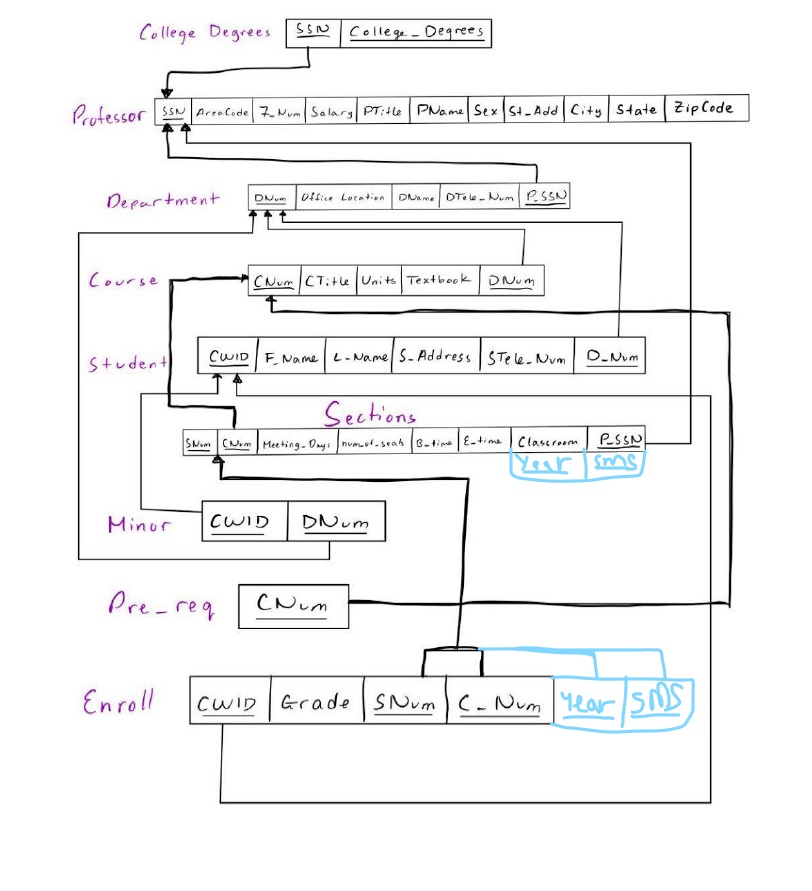 College Degrees SSN College_Degrees
Professor SSN AreaCode 7_Num Salary PTitle PName Sex St_Add City State ZipCode
Department DNum Office Location DName DTele_Num P_SSN
Course CNum CTitle Units Textbook DNum
Student CWID F_Name L_Name S_Address STele_Num D_Num
Sections
SNum CNum Meeting_Days num_of_seats B_time E_time Classroom P_SSN
Year SMS
Minor CWID DNum
Pre_req CNum
Enroll CWID Grade SNum C_Num Year SMS